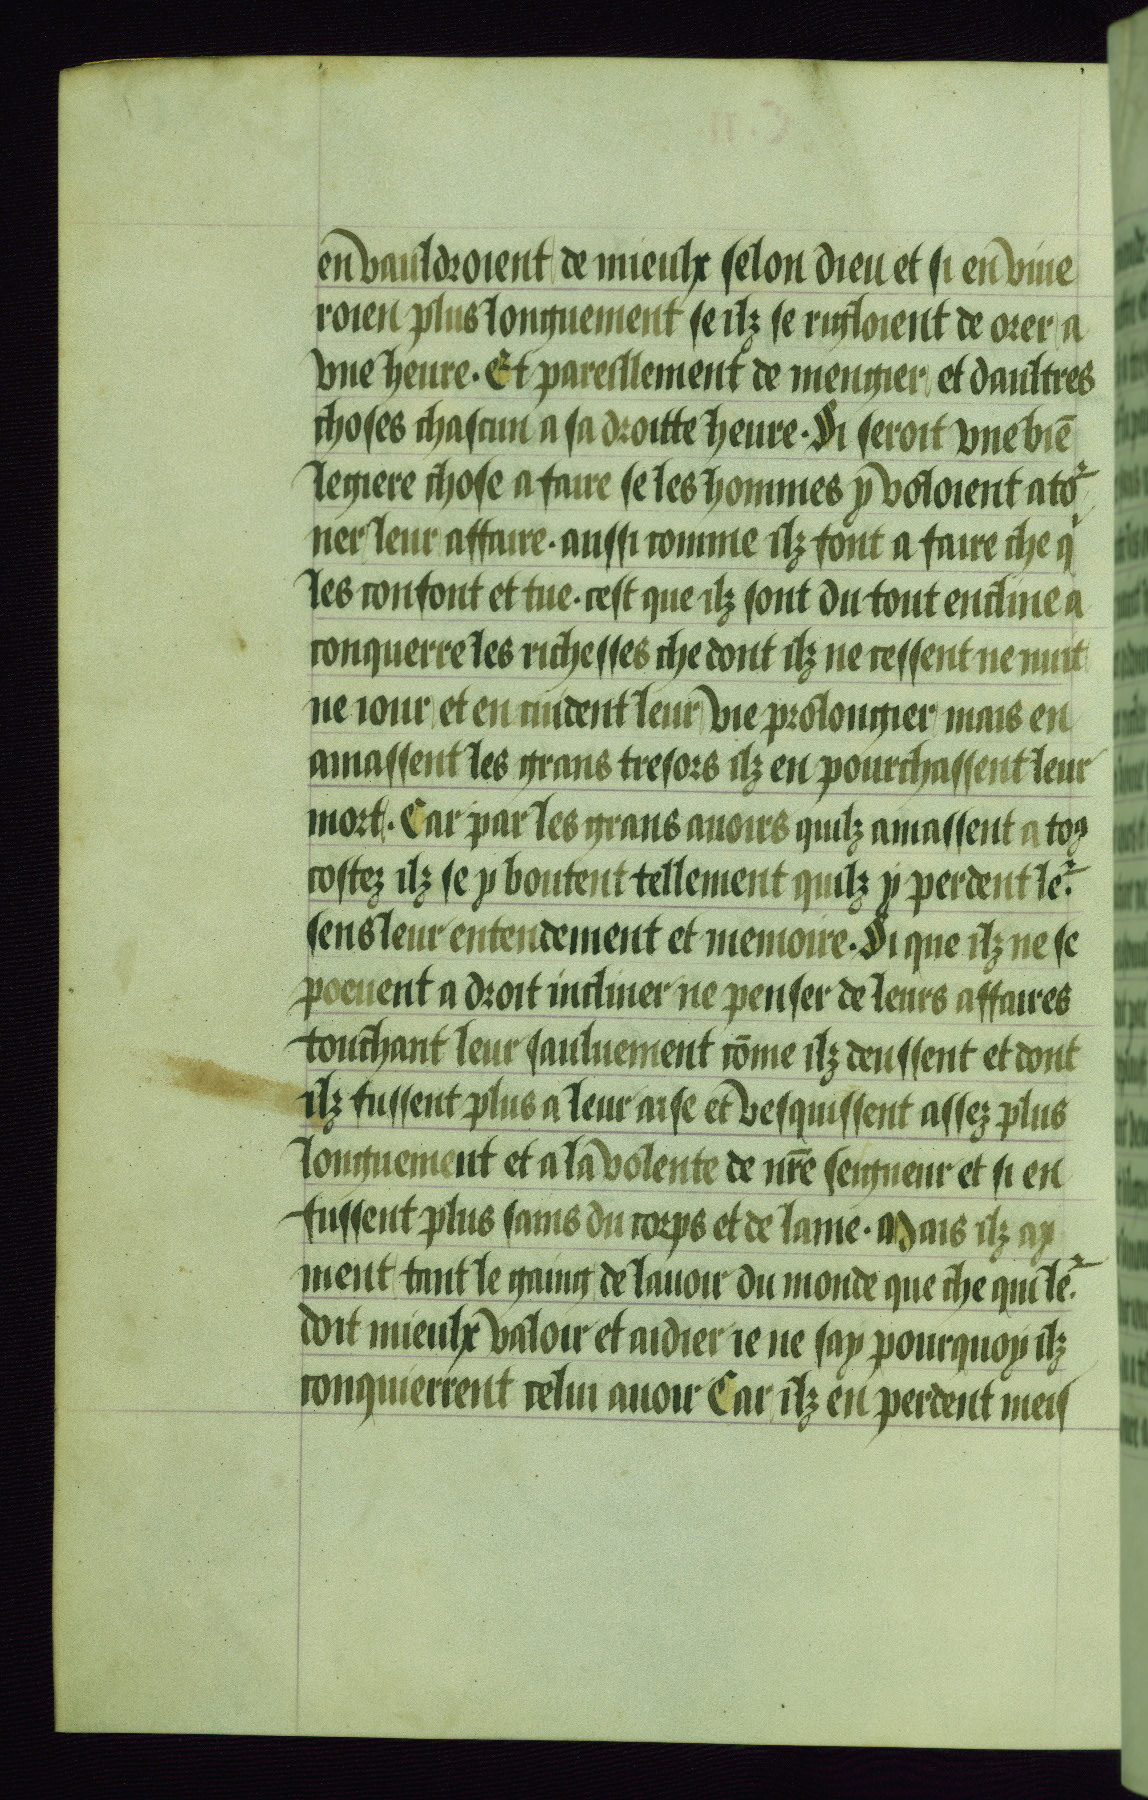 en vauldroient de mieulx selon dieu et si en viue
roien plus longuement se ilz se rigloient de orer a
vne heure. Et pareillement de mengier et daultres
choses chascun a sa droitte heure. Si seroit vne biē
legiere chose a faire se les hommes y voloient atoʳ
ner leur affaire. aussi comme ilz font a faire che qͥ
les confont et tue. cest que ilz sont du tout encline a
conquerre les richesses che dont ilz ne cessent ne nuit
ne iour et en cuident leur vie prolongier mais en
amassent les grans tresors ilz en pourchassent leur
mort. Car par les grans auoirs quilz amassent a toꝯ
costez ilz se y boutent tellement quilz y perdent leʳ.
sens leur entendement et memoire. Si que ilz ne se
poeuent a droit incliner ne penser de leurs affaires
touchant leur sauluement cōme ilz deussent et dont
ilz fussent plus a leur aise et vesquissent assez plus
longuement et a la volente de nr̄e seigneur et si en
fussent plus sains du corps et de lame. Mais ilz ay
ment tant le gaing de lauoir du monde que che qui leʳ.
doit mieulx valoir et aidier ie ne say pourquoy ilz
conquierrent celui auoir Car ilz en perdent meis